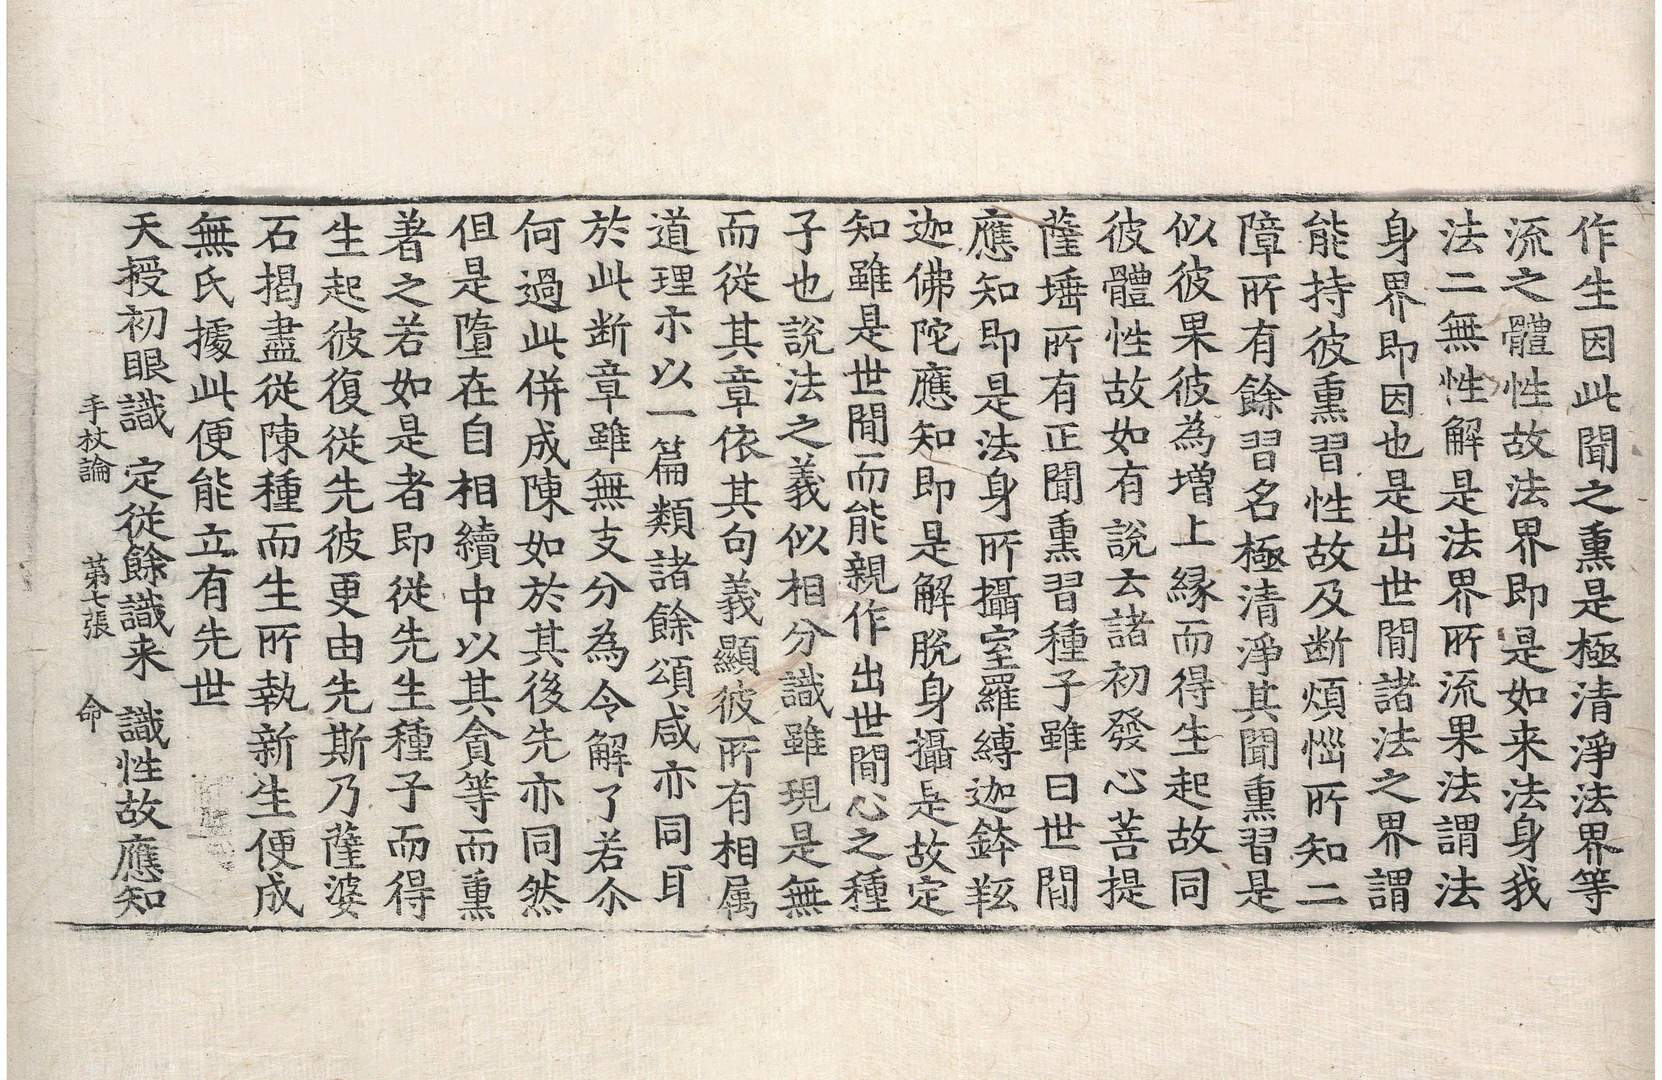 作生因此聞之熏是極清淨法界等
流之體性故法界即是如来法身我
法二無性解是法界所流果法謂法
身界即因也是出世間諸法之界謂
能持彼熏習性故及断煩惱所知二
障所有餘習名極清淨其聞熏習是
似彼果彼為增上縁而得生起故同
彼體性故如有說去諸初發心菩提
薩埵所有正聞熏習種子雖曰世間
應知即是法身所攝室羅縛迦鉢羝
迦佛陀應知即是解脫身攝是故定
知雖是世間而能親作出世間心之種
子也說法之義似相分識雖現是無
而從其章依其句義顯彼所有相属
道理亦以一篇類諸餘頌咸亦同耳
於此断章雖無支分為令解了若尒
何過此併成陳如於其後先亦同然
但是墮在自相續中以其貪等而熏
著之若如是者即從先生種子而得
生起彼復從先彼更由先斯乃薩婆
石揭盡從陳種而生所執新生便成
無氏據此便能立有先世
天授初眼識 定從餘識来 識性故應知
手杖論 第七張 命